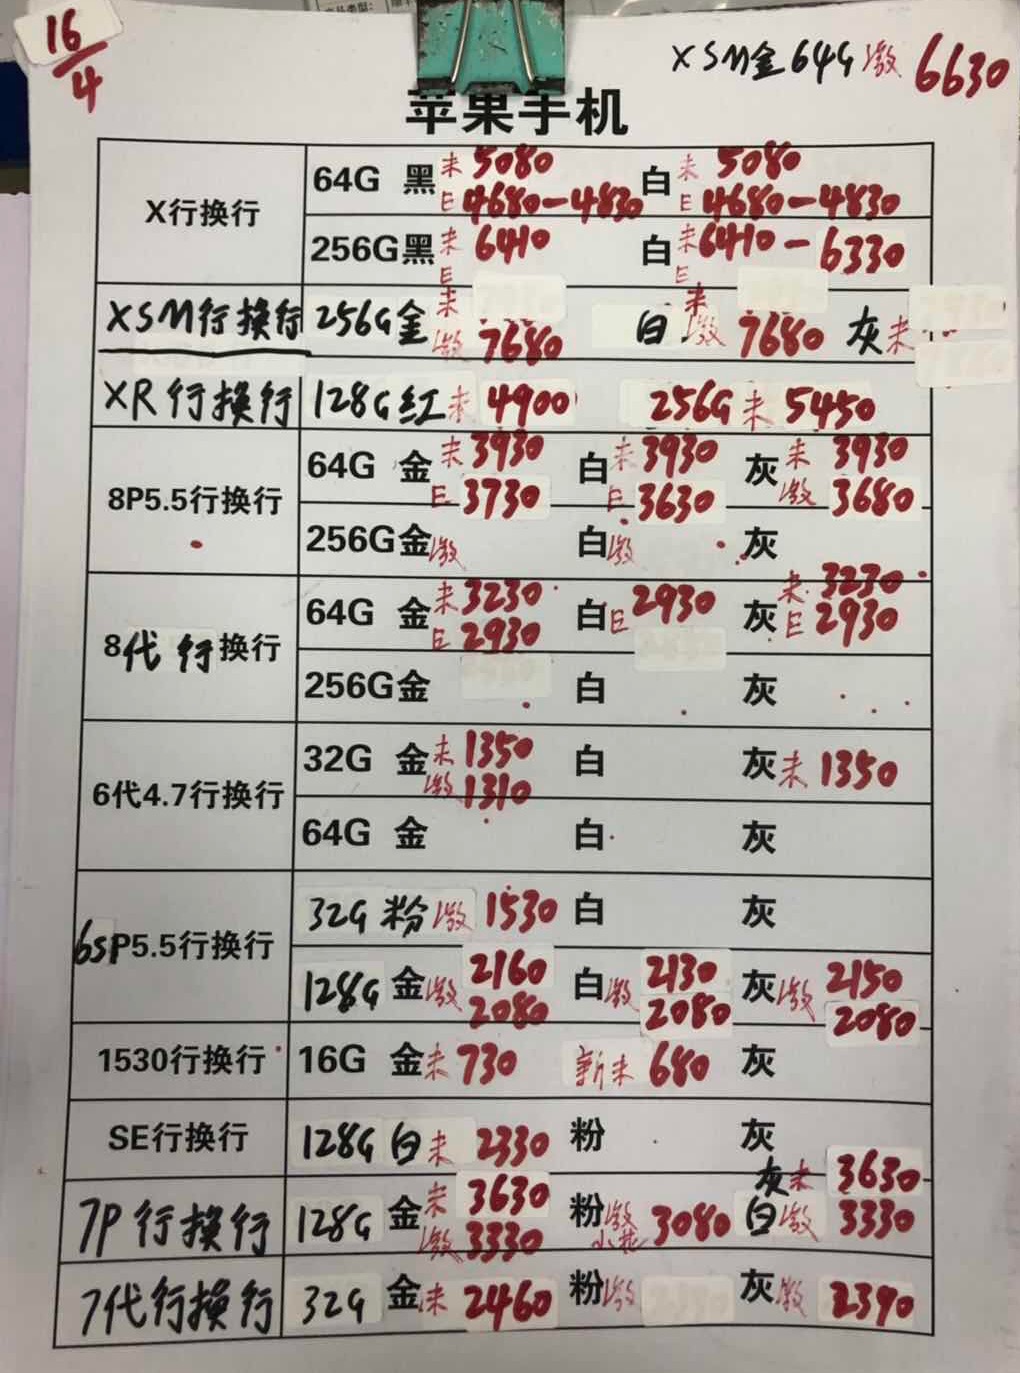 16/4
XSM金64G 激 6630
苹果手机
X行换行
64G 黑 未 5080 白 未 5080
E 4680-4830 E 4680-4830
256G黑 未 6410 白 未 6410-6330
E E
XSM行换行 256G金 未 激 7680 白 未 激 7680 灰 未
XR行换行 128G红 未 4900 256G 未 5450
8P5.5行换行
64G 金 未 3930 白 未 3930 灰 未 3930
E 3730 E 3630 激 3680
256G金 激 白 激 灰
8代行换行
64G 金 未 3230 白 E 2930 灰 未 3230
E 2930 E 2930
256G金 白 灰
6代4.7行换行
32G 金 未 1350 白 灰 未 1350
激 1310
64G 金 白 灰
6SP5.5行换行
32G 粉 激 1530 白 灰
128G 金 激 2160 白 激 2130 灰 激 2150
2080 2080 2080
1530行换行 16G 金 未 730 新未 680 灰
SE行换行 128G 白 未 2330 粉 灰
7P行换行
128G 金 未 3630 粉 激 3080 灰 未 3630
激 3330 白 激 3330
7代行换行 32G 金 未 2460 粉 激 灰 激 2390